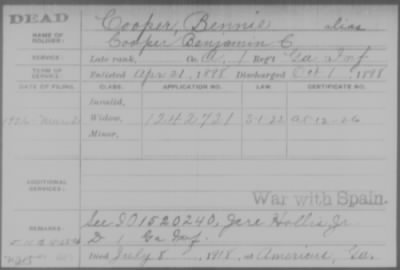 DEAD
NAME OF SOLDIER:
Cooper, Bennie alias
Cooper Benjamin C.
SERVICE:
Late rank, Co. A, 1 Reg't Ga Inf
TERM OF SERVICE:
Enlisted Apr 21, 1898 Discharged Oct 1, 1898
DATE OF FILING. CLASS. APPLICATION NO. LAW. CERTIFICATE NO.
Invalid,
Widow, 1242721
Minor,
ADDITIONAL SERVICES:
War with Spain.
REMARKS:
See SO1520240, Jere Hollis Jr
D 1 Ga Inf.
Died July 8, 1918, at Americus, Ga.